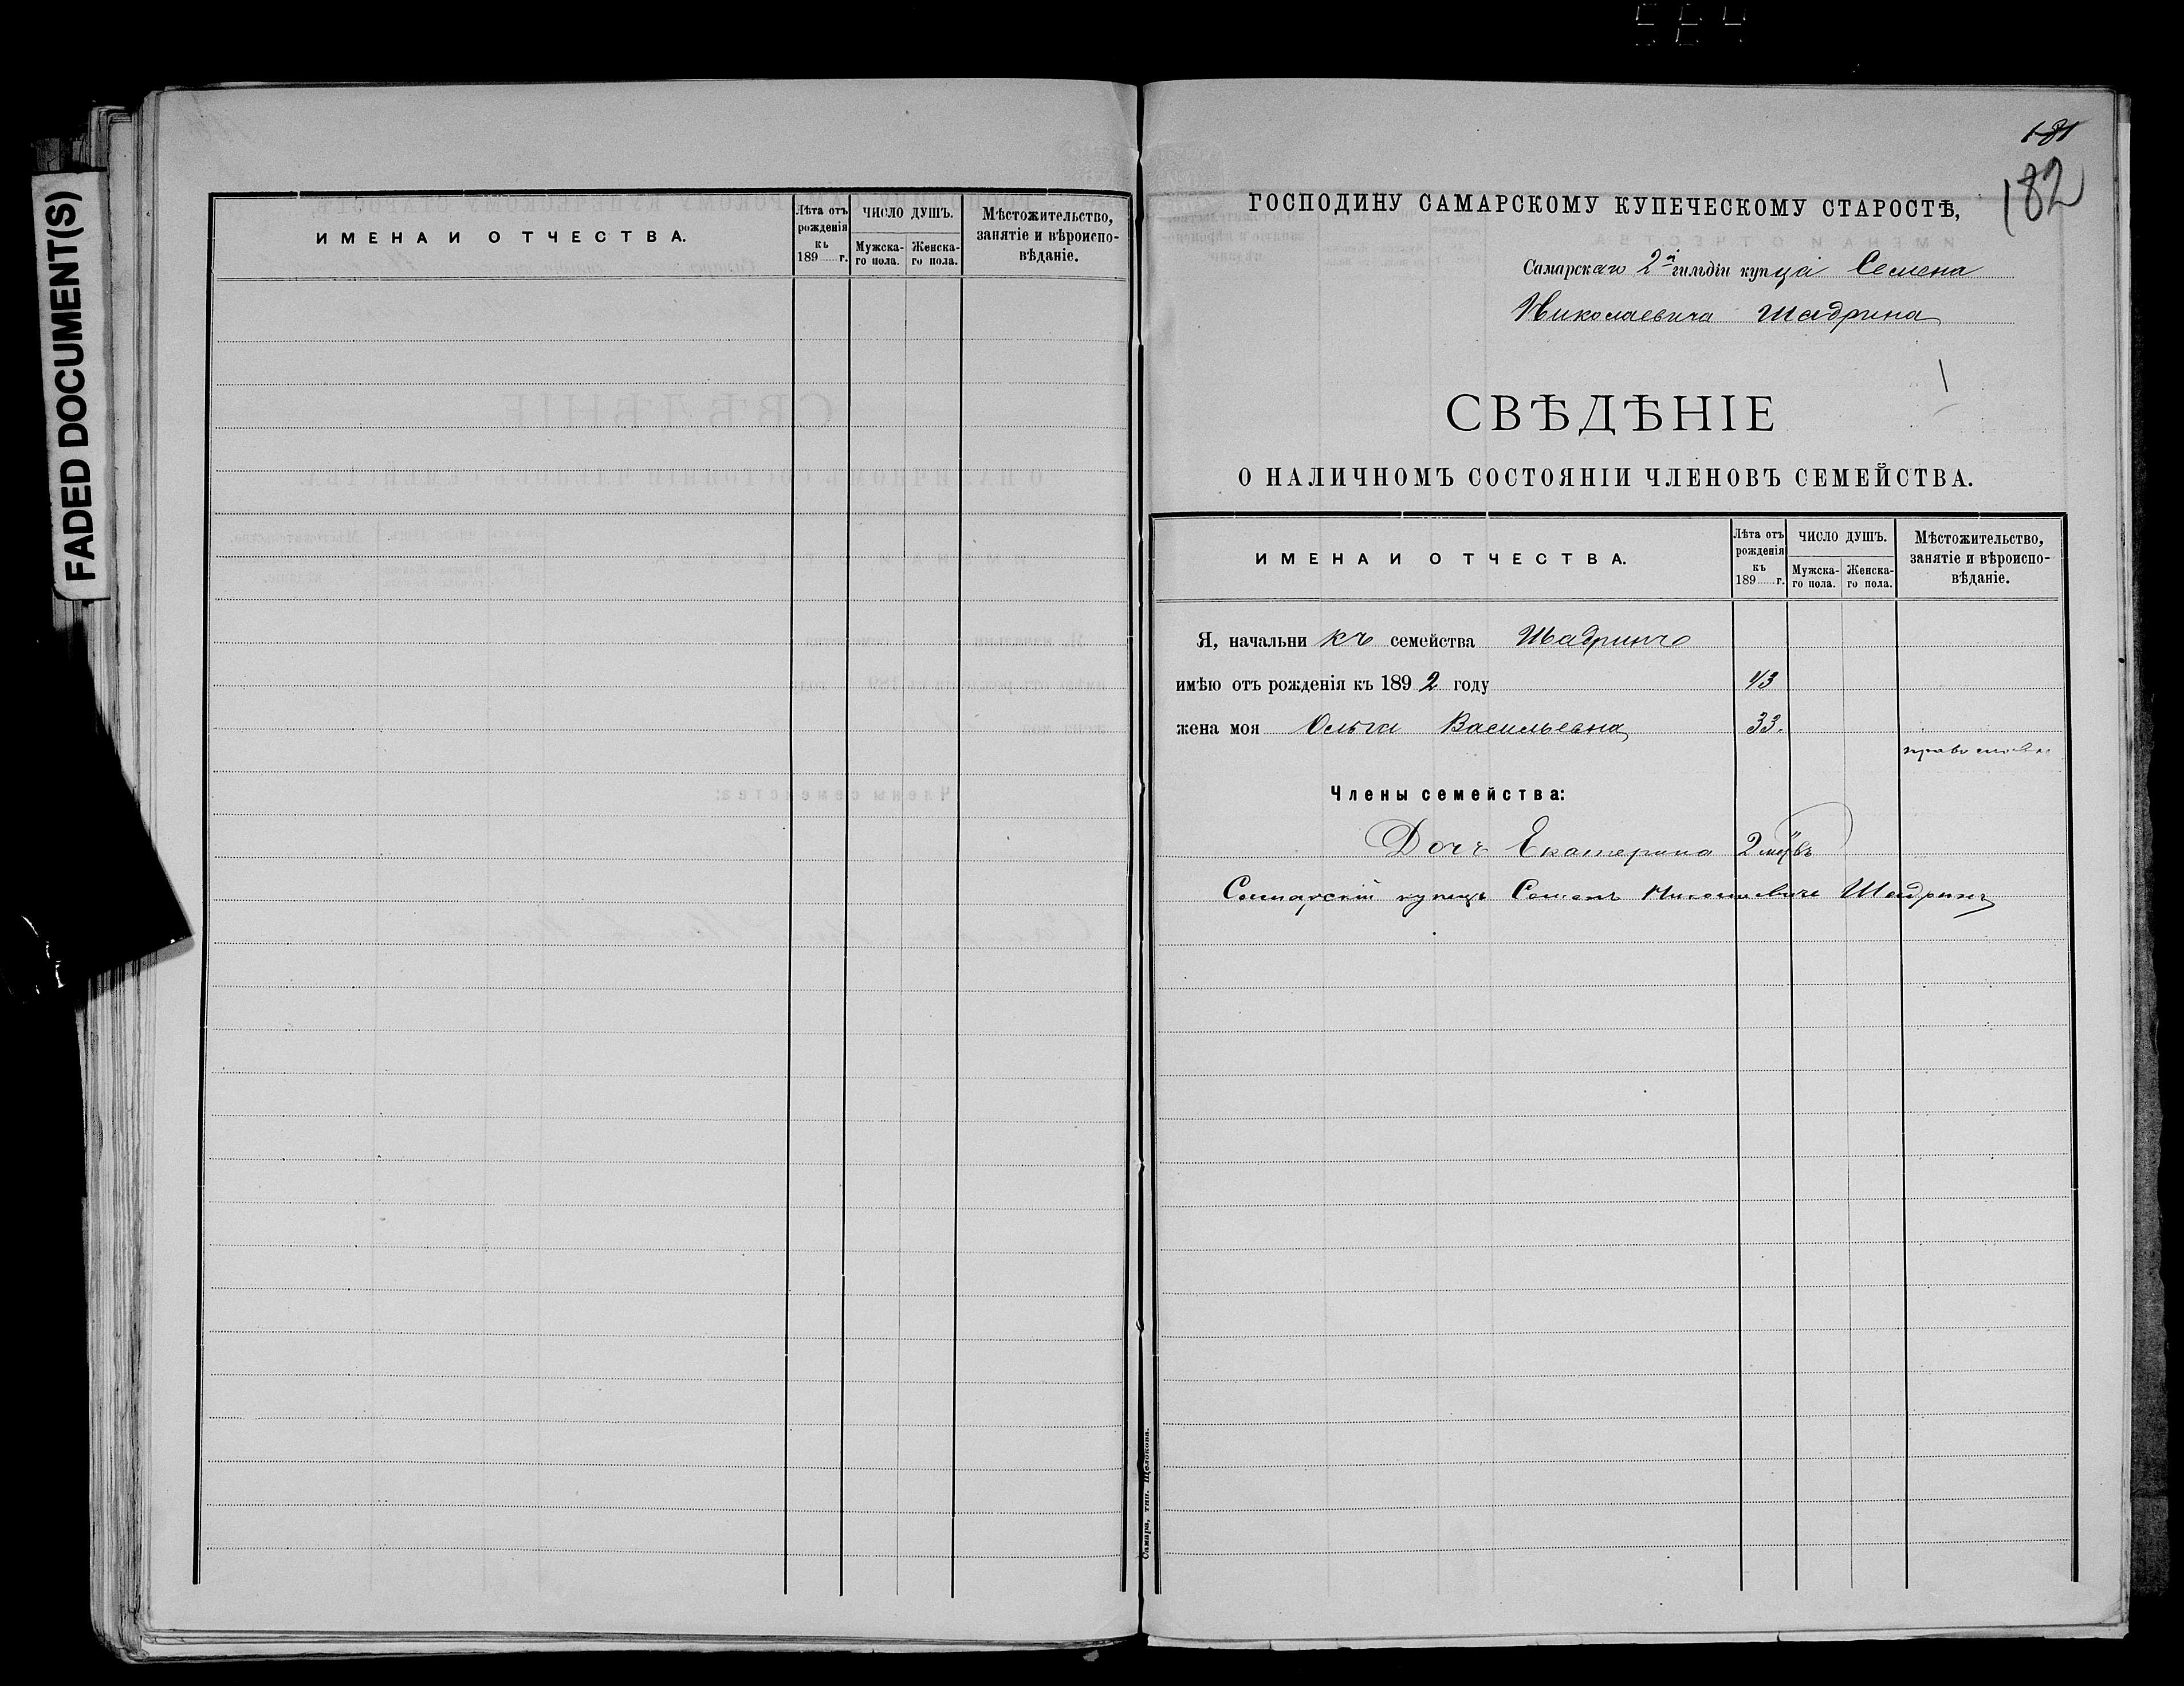 FADED DOCUMENT(S)
ИМЕНА И ОТЧЕСТВА.
Лѣта отъ рожденія къ 189 г.
ЧИСЛО ДУШЪ.
Мужска-го пола.
Женска-го пола.
Мѣстожительство, занятіе и вѣроиспо-вѣданіе.
181
182
ГОСПОДИНУ САМАРСКОМУ КУПЕЧЕСКОМУ СТАРОСТѢ,
Самарскаго 2й гильдіи купца Семена
Николаевича Шадрина
СВѢДѢНІЕ
О НАЛИЧНОМЪ СОСТОЯНІИ ЧЛЕНОВЪ СЕМЕЙСТВА.
ИМЕНА И ОТЧЕСТВА.
Лѣта отъ рожденія къ 189 г.
ЧИСЛО ДУШЪ.
Мужска-го пола.
Женска-го пола.
Мѣстожительство, занятіе и вѣроиспо-вѣданіе.
Я, начальникъ семейства Шадринъ
имѣю отъ рожденія къ 1892 году 43
жена моя Ольга Васильевна 33.
Члены семейства:
Дочь Екатерина 2
Самарскій купецъ Семенъ Николаевичъ Шадринъ
Самара, тип. Щелокова.